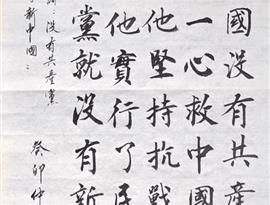 國没有共產
一心救中國
他堅持抗戰
他實行了民
黨就没有新
没有共產黨
新中國
癸卯仲